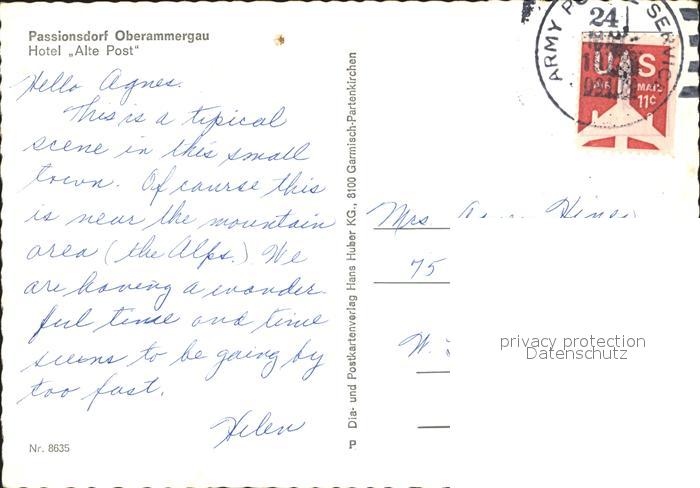 Passionsdorf Oberammergau
Hotel „Alte Post“
Hello Agnes.
This is a tipical
scene in this small
town. Of course this
is near the mountain
area (the Alps.) We
are having a wonder-
ful time and time
seems to be going by
too fast.
Helen
Nr. 8635
Dia- und Postkartenverlag Hans Huber KG., 8100 Garmisch-Partenkirchen
P
ARMY SERVICE
24
US
AIR MAIL
11c
Mrs
75
W.
privacy protection
Datenschutz